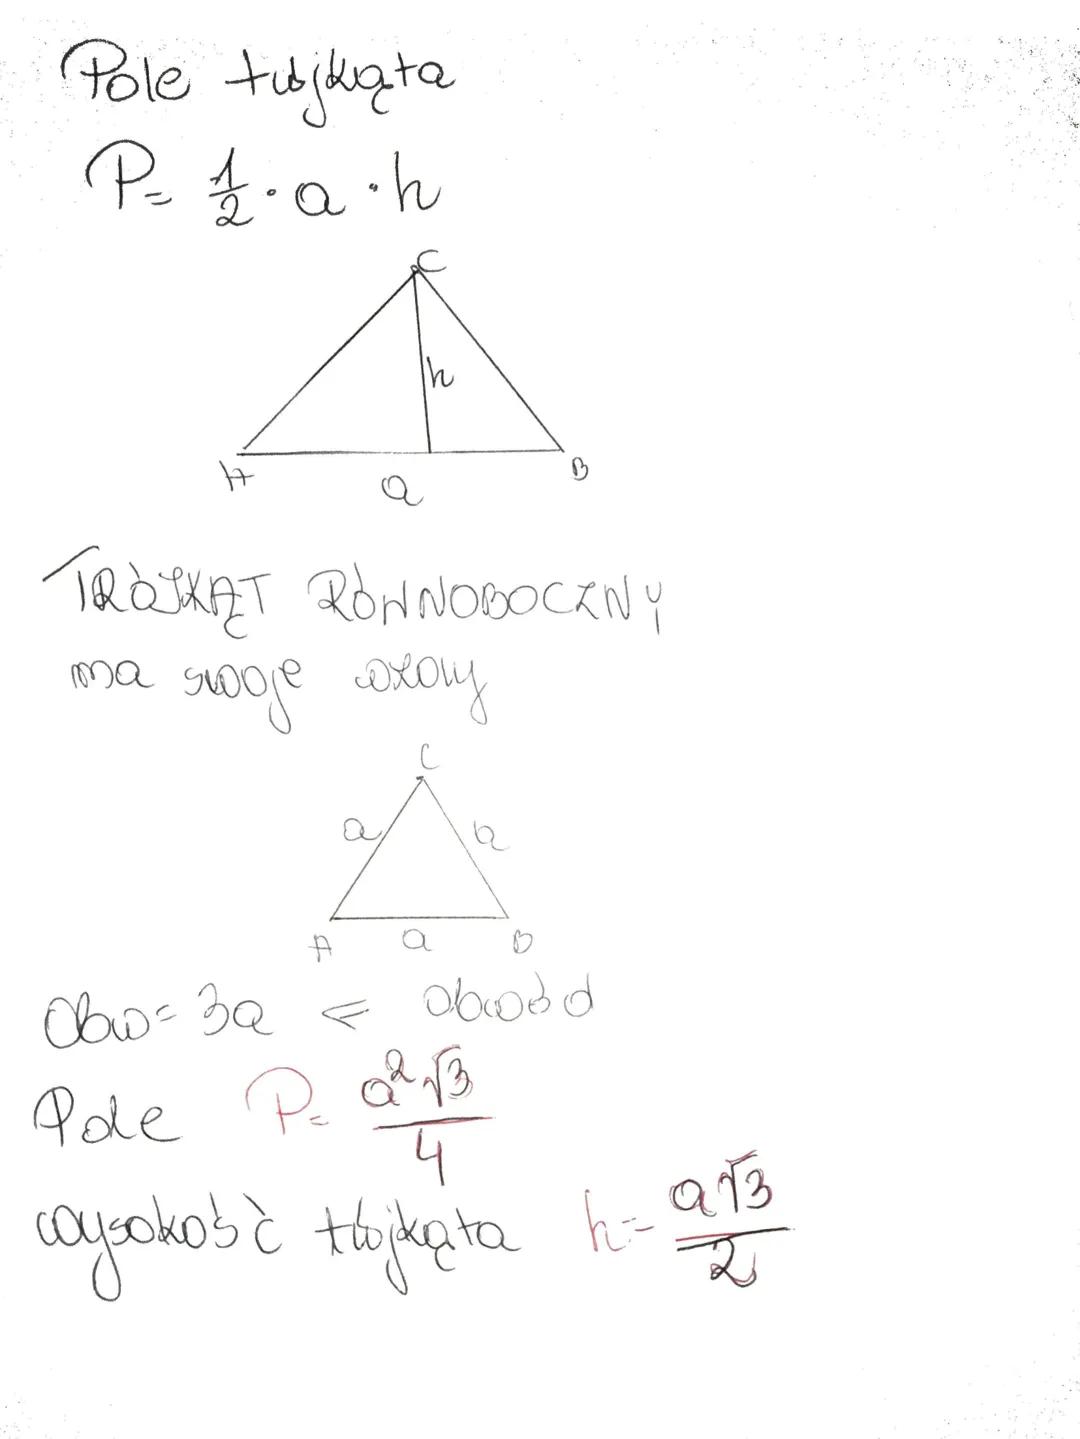 Pole trójkąta
P= 1/2 · a · h
C
h
A
B
a
TRÓJKĄT RÓWNOBOCZNY
ma swoje wzory
C
a
a
A
a
B
Obw= 3a ⇐ obwód
Pole P= a²√3/4
wysokość trójkąta h= a√3/2